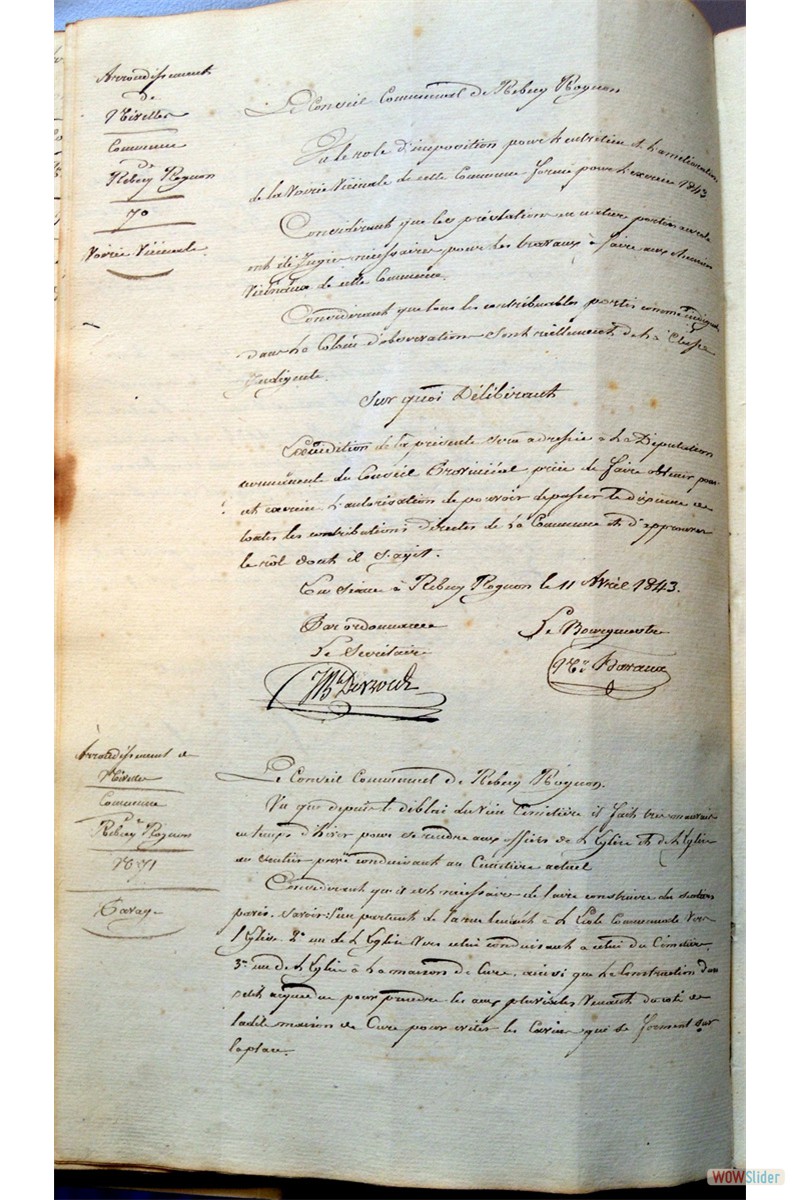 Arrondissement
de
Nivelles
Commune
de
Rebecq Rognon
N°
Voirie Vicinale
Le Conseil Communal de Rebecq Rognon
Vu le role d'imposition pour l'entretien et l'amélioration
de la Voirie Vicinale de cette Commune formé pour l'exercice 1843
Considérant que les préstations en nature portées au role
ont été Jugées nécessaires pour les travaux à faire aux chemins
Vicinaux de cette Commune.
Considérant que tous les contribuables portés comme indigents
dans la Colonne d'observations sont réellement de la Classe
Indigente.
Sur quoi Délibérant
Expédition de la présente sera adressée à la Députation
permanente du Conseil Provincial priée de faire obtenir pour
cet exercice l'autorisation de pouvoir depasser le dixième de
toutes les contributions directes de la Commune et d'approuver
le rôle dont il s'agit.
En séance à Rebecq Rognon le 11 Avril 1843.
Par ordonnance
Le Bourgmestre
Le Secrétaire
Arrondissement de
Nivelles
Commune
de
Rebecq Rognon
Pavage
Le Conseil Communal de Rebecq Rognon.
Vu que depuis le déblai du vieux Cimetière il fait très mauvais
en temps d'hiver pour se rendre aux offices de l'Eglise et de l'Eglise
au sentier pavé conduisant au Cimetière actuel
Considérant qu'il est nécessaire de faire construire des sentiers
pavés. savoir: 1° un partant de la rue tenant à l'Ecole Communale vers
l'Eglise 2° un de l'Eglise vers celui conduisant à celui du Cimetière,
3° un de l'Eglise à la maison de Cure, ainsi que la Construction d'un
petit aqueduc pour prendre les eaux pluviales venant du coté de
ladite maison de Cure pour éviter les ravins qui se forment sur
la place.
WOWSlider